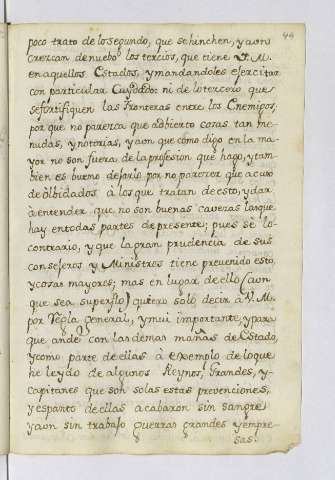 44
poco trato de lo segundo, que se hinchen, y aun
crezcan de nuebo los tercios, que tiene V. M.
en aquellos Estados, y mandandoles exercitar
con particular Cuydado: ni de lo tercero que
se fortifiquen las fronteras entre los Enemigos;
por que no parezca que adbierto cosas tan me-
nudas, y notorias, y aun que como digo en la ma-
yor no son fuera de la profesion que hago, y tam-
bien es bueno dejarlo por no parecer que acuso
de olbidados à los que tratan de esto, y dar
à entender que no son buenas cavezas las que
hay en todas partes de presente; pues se lo
contrario, y que la gran prudencia de sus
consejeros y Ministros tiene prevenido esto,
y cosas mayores; mas en lugar de ello (aun
que sea superfluo) quiero solo decir à V. M.
por Regla general, y mui importante, y para
que ande con las demas mañas de Estado,
y como parte de ellas à exemplo de lo que
he leydo de algunos Reynos, Grandes, y
capitanes que son solas estas prevenciones,
y espanto de ellas acabaron sin sangre
y aun sin trabajo guerras grandes y empre-
sas